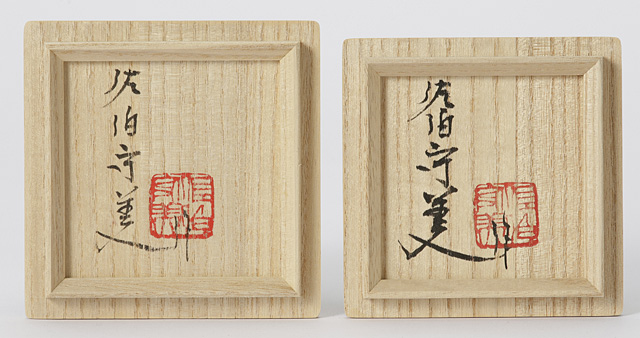 佐伯守美
佐伯守美